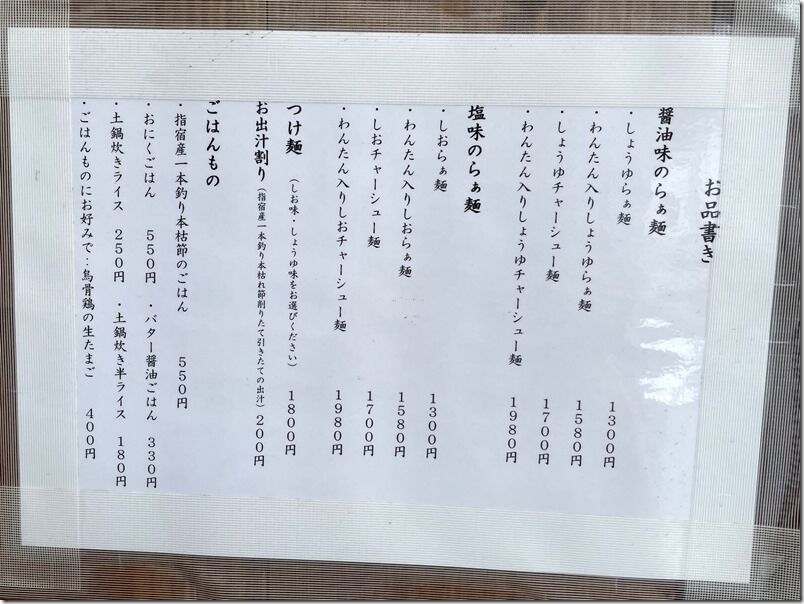 お品書き
醤油味のらぁ麺
・しょうゆらぁ麺 1300円
・わんたん入りしょうゆらぁ麺 1580円
・しょうゆチャーシュー麺 1700円
・わんたん入りしょうゆチャーシュー麺 1980円
塩味のらぁ麺
・しおらぁ麺 1300円
・わんたん入りしおらぁ麺 1580円
・しおチャーシュー麺 1700円
・わんたん入りしおチャーシュー麺 1980円
つけ麺 (しお味・しょうゆ味をお選びください) 1800円
お出汁割り(指宿産一本釣り本枯れ節削りたて引きたての出汁) 200円
ごはんもの
・指宿産一本釣り本枯節のごはん 550円
・おにくごはん 550円 ・バター醤油ごはん 330円
・土鍋炊きライス 250円 ・土鍋炊き半ライス 180円
・ごはんものにお好みで…烏骨鶏の生たまご 400円